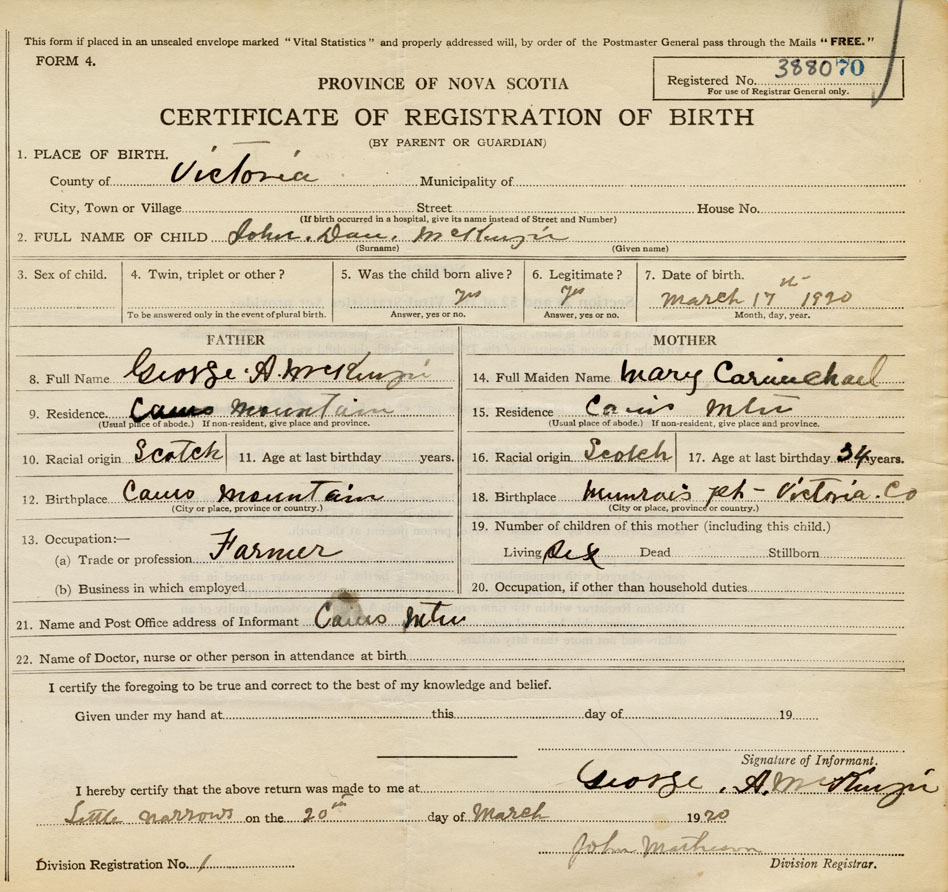 This form if placed in an unsealed envelope marked "Vital Statistics" and properly addressed will, by order of the Postmaster General pass through the Mails "FREE."
FORM 4.
Registered No. 388070
For use of Registrar General only.
PROVINCE OF NOVA SCOTIA
CERTIFICATE OF REGISTRATION OF BIRTH
(BY PARENT OR GUARDIAN)
1. PLACE OF BIRTH.
County of Victoria Municipality of
City, Town or Village Street House No.
(If birth occurred in a hospital, give its name instead of Street and Number)
2. FULL NAME OF CHILD John. Dan. McKenzie
(Surname) (Given name)
3. Sex of child. 4. Twin, triplet or other? 5. Was the child born alive? 6. Legitimate? 7. Date of birth.
yes yes March 17th 1920
To be answered only in the event of plural birth. Answer, yes or no. Answer, yes or no. Month, day, year.
FATHER MOTHER
8. Full Name George. A. McKenzie 14. Full Maiden Name Mary Carmichael
9. Residence. Cains Mountain 15. Residence Cains Mtn
(Usual place of abode.) If non-resident, give place and province. (Usual place of abode.) If non-resident, give place and province.
10. Racial origin Scotch 11. Age at last birthday years. 16. Racial origin Scotch 17. Age at last birthday 34 years.
12. Birthplace Cains Mountain 18. Birthplace Munroe's pt - Victoria. Co
(City or place, province or country.) (City or place, province or country.)
13. Occupation:— 19. Number of children of this mother (including this child.)
(a) Trade or profession Farmer Living Six Dead Stillborn
(b) Business in which employed 20. Occupation, if other than household duties
21. Name and Post Office address of Informant Cains Mtn
22. Name of Doctor, nurse or other person in attendance at birth
I certify the foregoing to be true and correct to the best of my knowledge and belief.
Given under my hand at this day of 19
Signature of Informant.
I hereby certify that the above return was made to me at George. A. McKenzie
Little Narrows on the 20th day of March 1920
John Matheson
Division Registration No. 1 Division Registrar.